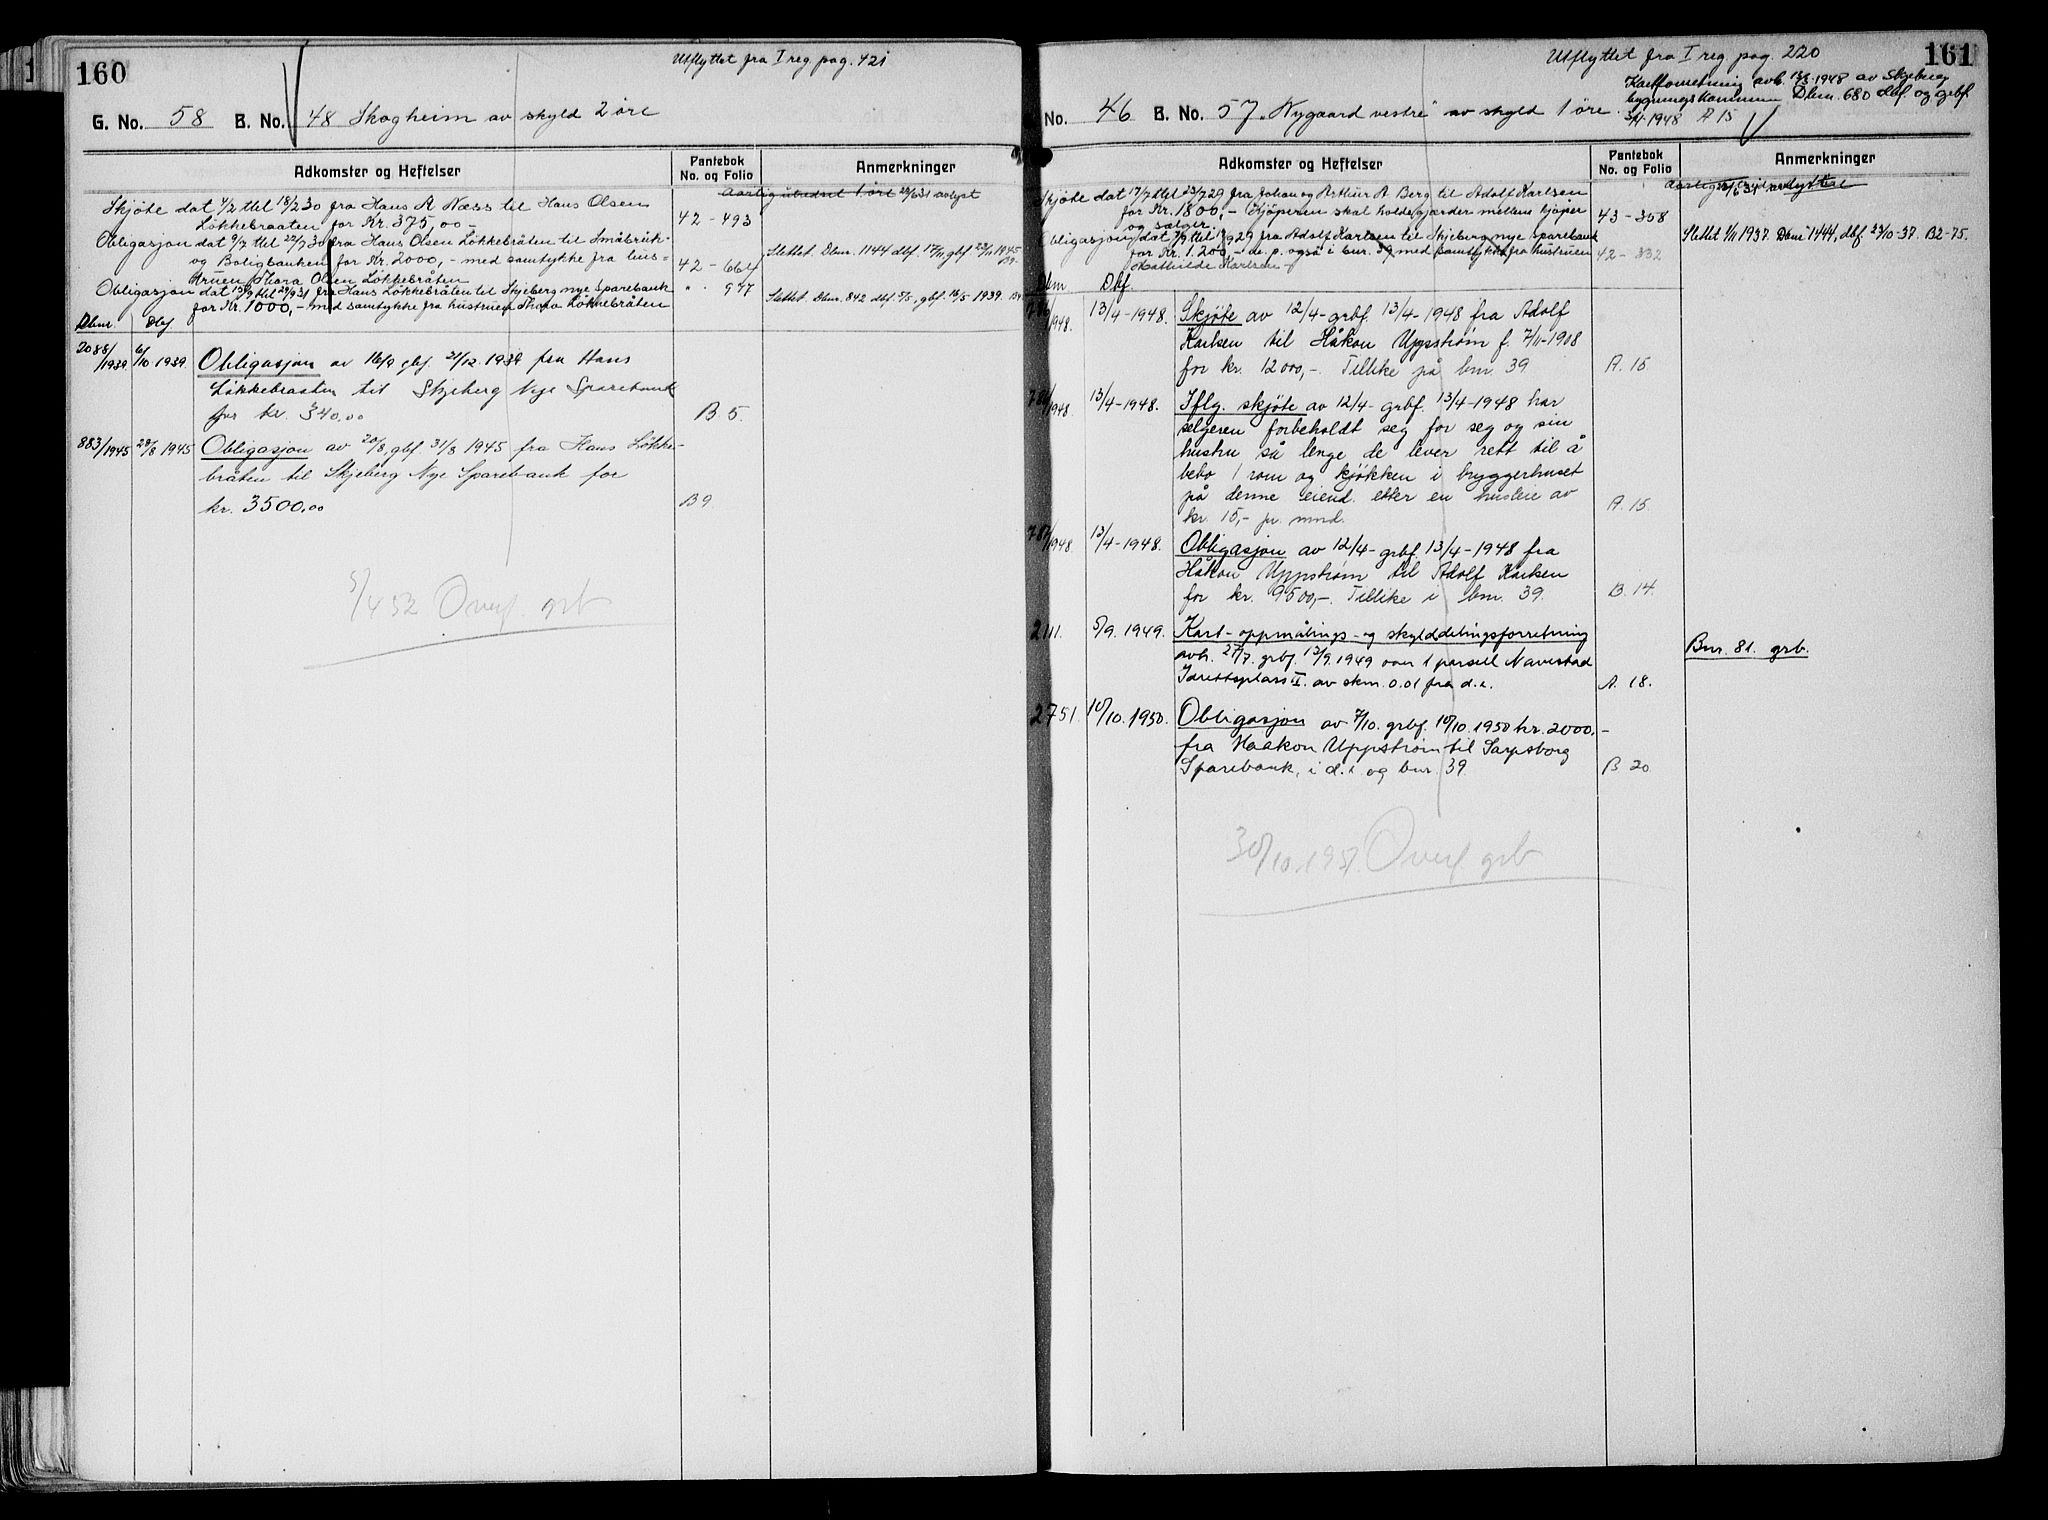 160
Utflyttet fra I reg pag. 421
G. No. 58 B. No. 48 Skogheim av skyld 2 øre
Adkomster og Heftelser
Pantebok No. og Folio
Anmerkninger
Aarlig utredsel 1 øre 29/631 avlyst
Skjøte dat 4/2 thl 18/2 30 fra Hans A Næss til Hans Olsen
Løkkebraaten for Kr. 375,00
42 - 493
Obligasjon dat 9/7 thl 22/7 30 fra Hans Olsen Løkkebråten til Småbruk-
og Boligbanken for Kr. 2000,- med samtykke fra hus-
truen Thora Olsen Løkkebråten
42 - 664
Slettet. Dbnr. 1144 dbf. 17/11 gbf 23/11 1945 B9.
Obligasjon dat 15/9 thl 29/9 31 fra Hans Løkkebråten til Skjeberg nye Sparebank
for Kr. 1000,- med samtykke fra hustruen Thora Løkkebråten
" - 977
Slettet Dbnr. 842 dbf. 9/5, gbf. 16/5 1939. B4
Dbnr. Dbf
2088/1939 6/10 1939. Obligasjon av 16/9 gbf 21/12 1939 fra Hans
Løkkebraaten til Skjeberg Nye Sparebank
for kr. 340,00
B 5.
883/1945 28/8 1945 Obligasjon av 20/8, gbf. 31/8 1945 fra Hans Løkke-
bråten til Skjeberg Nye Sparebank for
kr. 3500,00
B 9
5/4 52 Overf. grb
161
Utflyttet fra I reg pag. 220
Kartforretning avh. 13/3-1948 av Skjeberg
bygningskommune Dbnr. 680 dbf. og grbf.
3/4-1948 A 15
No. 46 B. No. 57 "Nygaard vestre" av skyld 1 øre.
Adkomster og Heftelser
Pantebok No. og Folio
Anmerkninger
Skjøte dat 17/7 thl 23/7 29 fra Johan og Arthur A Berg til Adolf Karlsen
for Kr. 1800,- Kjøperen skal holde gjærder mellem kjøper
og sælger.
43 - 358
Obligasjon dat 7/9 thl 19/9 29 fra Adolf Karlsen til Skjeberg nye Sparebank
for Kr. 1.200,- 1 p. også i bnr. 39 med samtykke fra hustruen
Mathilde Karlsen
42 - 332
Slettet 1/11 1937. Dbnr 1444, dbf. 23/10-37. B2-75.
Dbnr Dbf.
/1948. 13/4-1948. Skjøte av 12/4- grbf. 13/4-1948 fra Adolf
Karlsen til Håkon Uppstrøm f. 7/11-1908
for kr. 12000,-. Tillike på bnr. 39.
A. 15
/1948 13/4-1948. Iflg. skjøte av 12/4- grbf. 13/4-1948 har
selgeren forbeholdt seg for seg og sin
hustru så lenge de lever rett til å
bebo 1 rom og kjøkken i bryggerhuset
på denne eiend. etter en husleie av
kr. 15,- pr. mnd.
A. 15.
/1948. 13/4-1948. Obligasjon av 12/4- grbf. 13/4-1948 fra
Håkon Uppstrøm til Adolf Karlsen
for kr. 9500,-. Tillike i bnr. 39.
B. 14.
2111. 5/9. 1949. Kart- oppmålings- og skylddelingsforretning
avh. 27/7. grbf. 13/9. 1949 over 1 parsell Navestad
Idrettsplass II. av skm. 0.01 fra d.e.
A. 18.
Bnr. 81. grb.
2751. 10/10. 1950. Obligasjon av 7/10. grbf. 10/10. 1950 kr. 2000,-
fra Haakon Uppstrøm til Sarpsborg
Sparebank, i d.e og bnr. 39.
B 20.
30/10.1951. Overf. grb